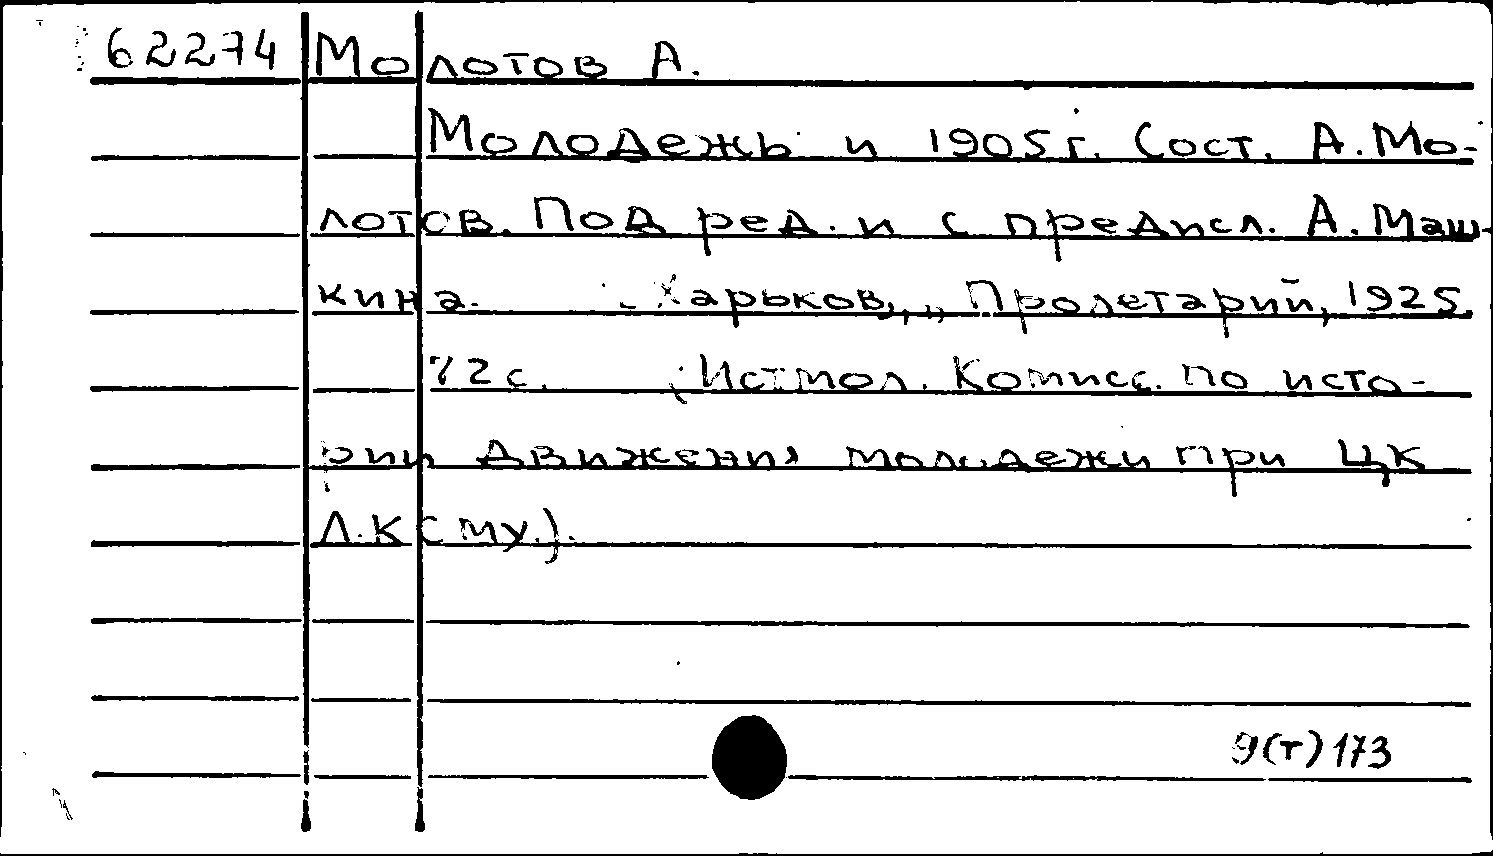 62274 Молотов А.
Молодежь и 1905 г. Сост. А. Мо-
лотов. Под ред. и с предисл. А. Маш-
кина. Харьков, „Пролетарий, 1925.
72 с. (Истмол. Комисс. по исто-
рии движения молодежи при ЦК
Л.К С МУ.).
9(т)173